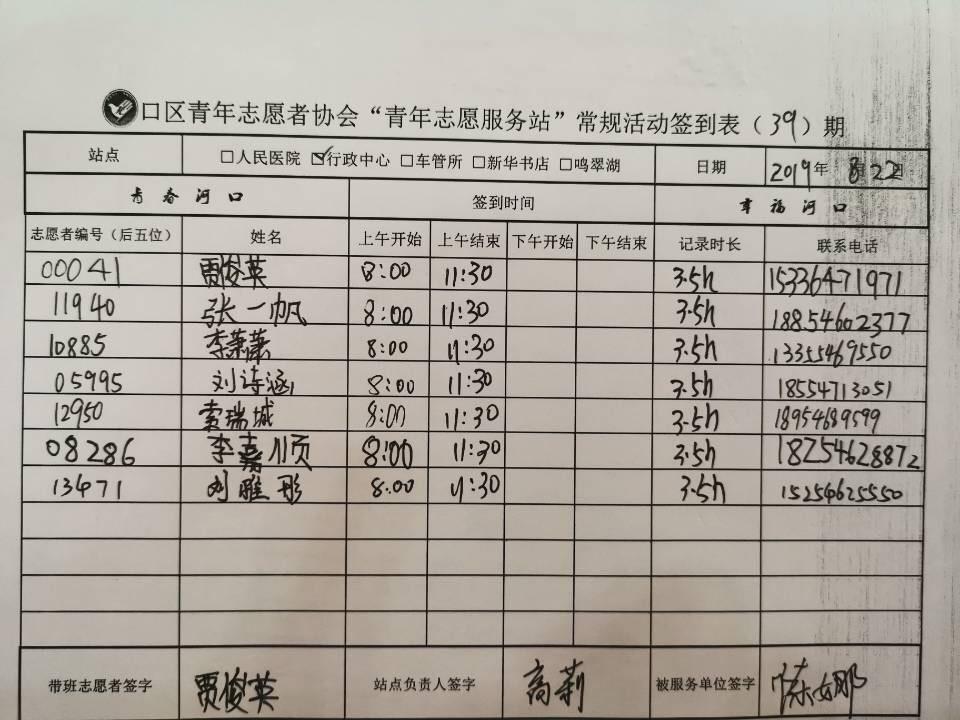 口区青年志愿者协会“青年志愿服务站”常规活动签到表（39）期
站点 □人民医院 ☑行政中心 □车管所 □新华书店 □鸣翠湖 日期 2019年8月22日
青春河口 签到时间 幸福河口
志愿者编号（后五位） 姓名 上午开始 上午结束 下午开始 下午结束 记录时长 联系电话
00041 贾俊英 8:00 11:30 3.5h 15336471971
11940 张一帆 8:00 11:30 3.5h 18854602377
10885 李萧萧 8:00 11:30 3.5h 13355469550
05995 刘诗涵 8:00 11:30 3.5h 18554713051
12950 索瑞城 8:00 11:30 3.5h 18954689599
08286 李嘉顺 8:00 11:30 3.5h 18254628872
13471 刘雕彤 8:00 11:30 3.5h 15254625550
带班志愿者签字 贾俊英 站点负责人签字 高莉 被服务单位签字 陈女那